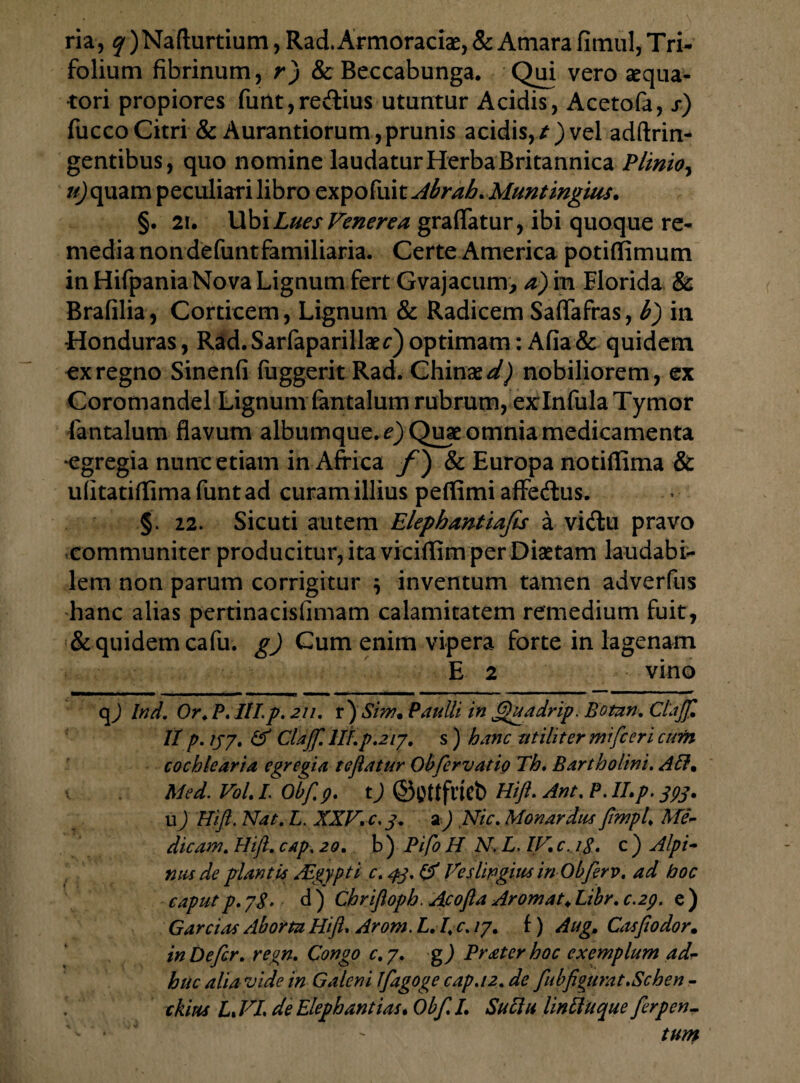 ria, q) Nasturtium, Rad. Armoraciæ, & Amara simul, Tri-
folium fibrinum, r) & Beccabunga. Qui vero æqua-
tori propiores sunt, rectius utuntur Acidis, Acetosa, s)
succo Citri & Aurantiorum, prunis acidis, t) vel adstrin-
gentibus, quo nomine laudatur Herba Britannica Plinio,
u) quam peculiari libro exposuit Abrah. Muntingius.
§. 21. Ubi Lues Venerea grassatur, ibi quoque re-
media non desunt familiaria. Certe America potissimum
in Hispania Nova Lignum fert Gvajacum, a) in Florida &
Brasilia, Corticem, Lignum & Radicem Sassafras, b) in
Honduras, Rad. Sarsaparillæ c) optimam: Asia & quidem
ex regno Sinensi suggerit Rad. Chinæ d) nobiliorem, ex
Coromandel Lignum santalum rubrum, ex Insula Tymor
santalum flavum albumque. e) Quæ omnia medicamenta
egregia nunc etiam in Africa f) & Europa notissima &
usitatissima sunt ad curam illius pessimi affectus.
§. 22. Sicuti autem Elephantiasis à victu pravo
communiter producitur, ita vicissim per Diætam laudabi-
lem non parum corrigitur ; inventum tamen adversus
hanc alias pertinacissimam calamitatem remedium fuit,
& quidem casu. g) Cum enim vipera forte in lagenam
E 2 vino
q) Ind. Or. P. III. p. 211. r) Sim. Paulli in Quadrip. Botan. Class.
II p. 157. & Class. III. p. 217. s) hanc utiliter misceri cum
cochlearia egregia testatur Observatio Th. Bartholini. Act.
Med. Vol. I. Obs. 9. t) Gottfried Hist. Ant. P. II. p. 393.
u) Hist. Nat. L. XXV. c. 3. a) Nic. Monardus simpl. Me-
dicam. Hist. cap. 20. b) Piso H N. L. IV. c. 18. c) Alpi-
nus de plantis Ægypti c. 43. & Veslingius in Observ. ad hoc
caput p. 78. d) Christoph. Acosta Aromat. Libr. c. 29. e)
Garcias Aborta Hist. Arom. L. I. c. 17. f) Aug. Cassiodor.
in Descr. regn. Congo c. 7. g) Præter hoc exemplum ad-
huc alia vide in Galeni Isagoge cap. 12. de subfigurat. Schen-
ckius L. VI. de Elephantias. Obs. I. Suctu linctuque serpen-
tum